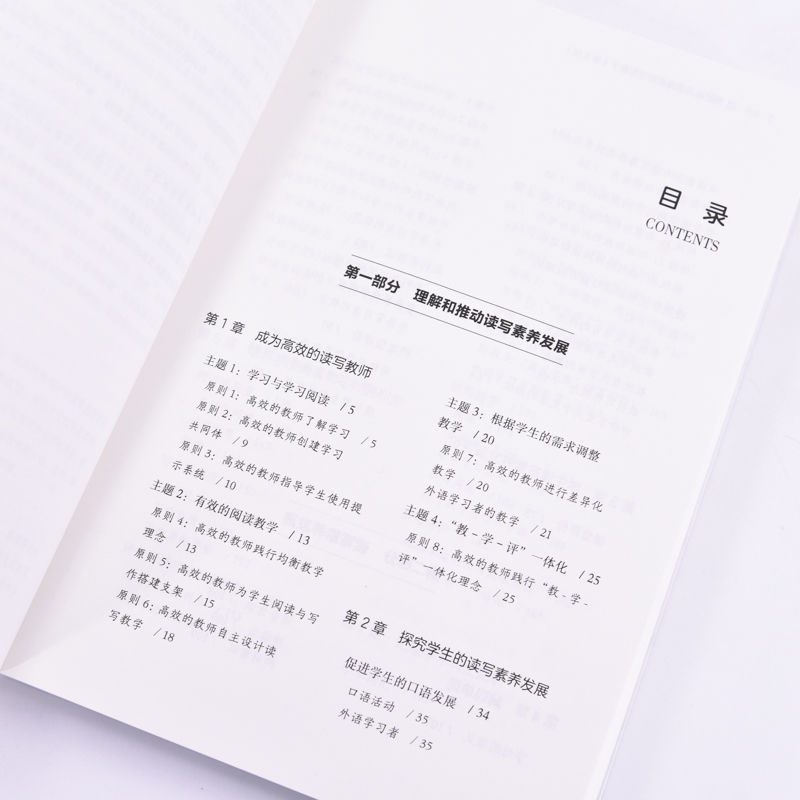 目 录
CONTENTS
第一部分 理解和推动读写素养发展
第 1 章 成为高效的读写教师
主题 1：学习与学习阅读 / 5
原则 1：高效的教师了解学习 / 5
原则 2：高效的教师创建学习
共同体 / 9
原则 3：高效的教师指导学生使用提
示系统 / 10
主题 2：有效的阅读教学 / 13
原则 4：高效的教师践行均衡教学
理念 / 13
原则 5：高效的教师为学生阅读与写
作搭建支架 / 15
原则 6：高效的教师自主设计读
写教学 / 18
主题 3：根据学生的需求调整
教学 / 20
原则 7：高效的教师进行差异化
教学 / 20
外语学习者的教学 / 21
主题 4：“教-学-评”一体化 / 25
原则 8：高效的教师践行“教-学-
评”一体化理念 / 25
第 2 章 探究学生的读写素养发展
促进学生的口语发展 / 34
口语活动 / 35
外语学习者 / 35